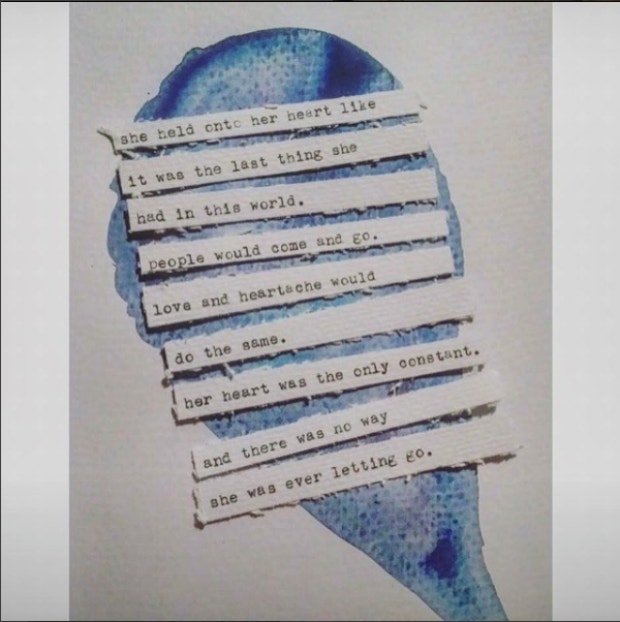 she held onto her heart like
it was the last thing she
had in this world.
people would come and go.
love and heartache would
do the same.
her heart was the only constant.
and there was no way
she was ever letting go.